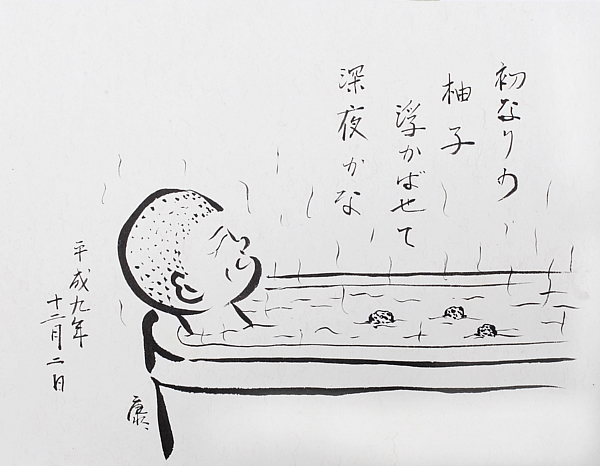 初なりの
柚子
浮かばせて
深夜かな
平成九年
十二月二日
康